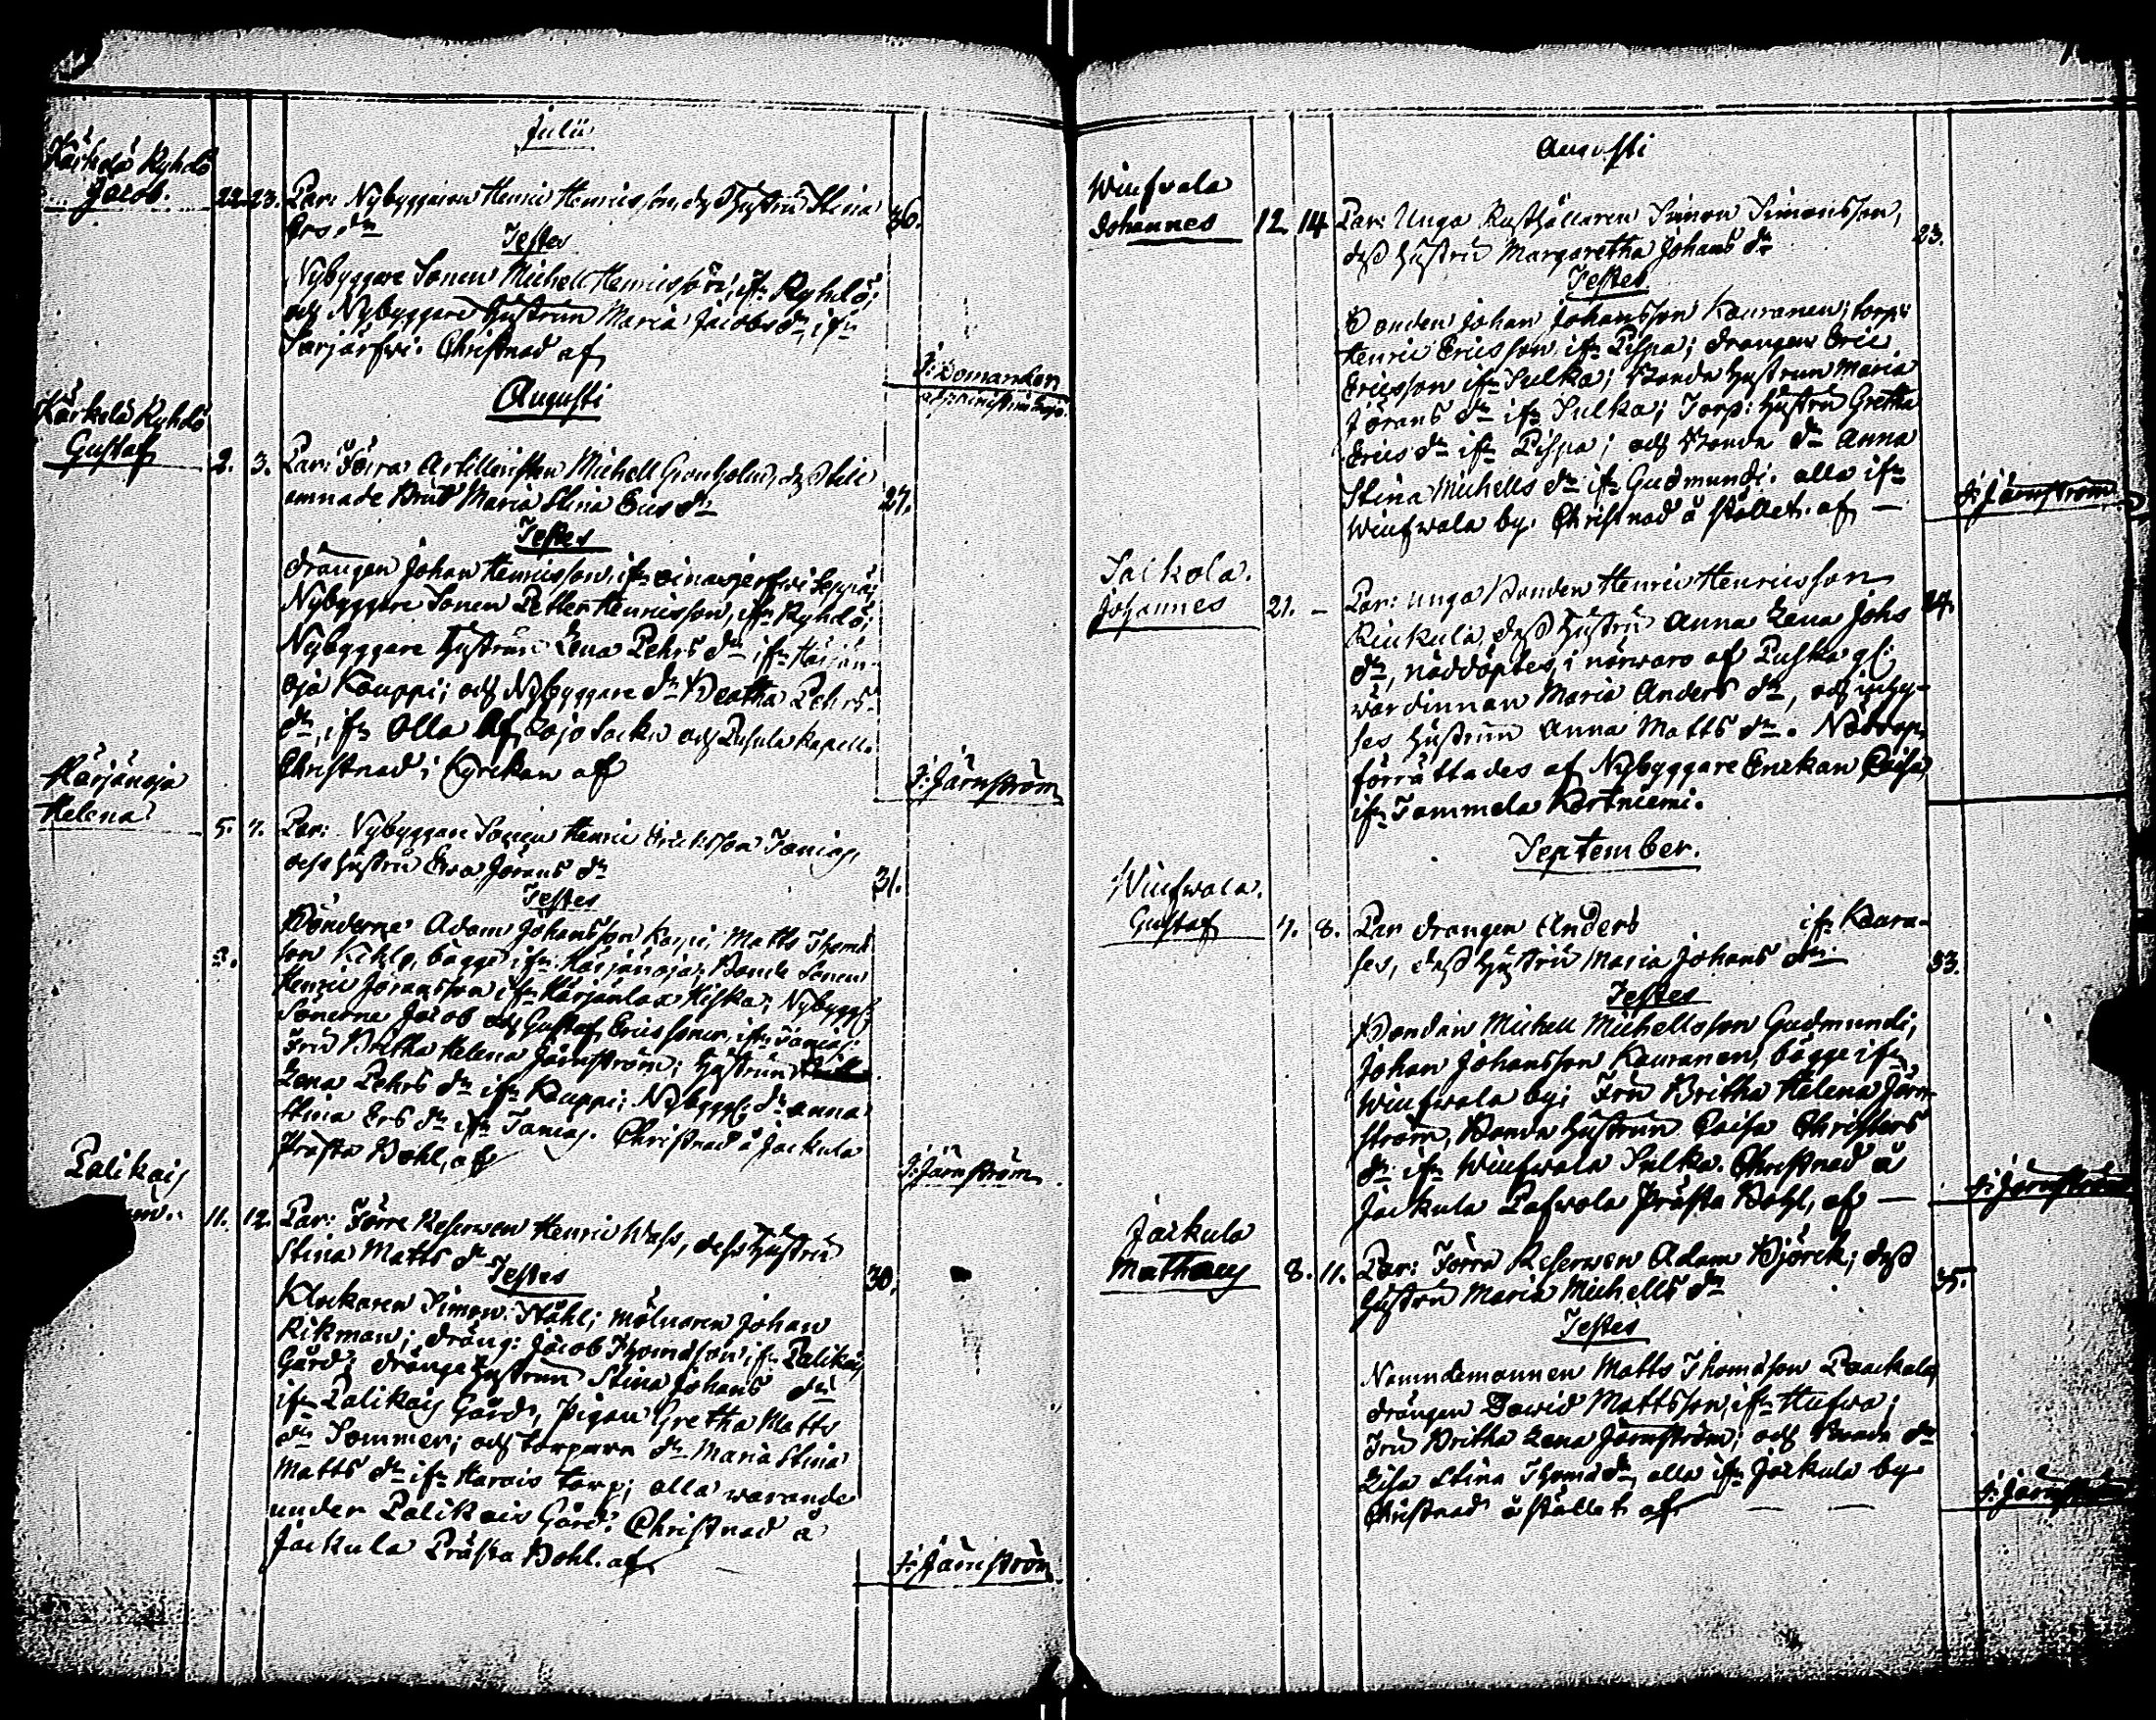 Julii
Kärkelä Kyhdö
Jacob. 22. 23. Par: Nybyggaren Henric Henricsson, dess Hustru Stina 36.
Ers dr
Testes
Nybyggare Sonen Michell Henricsson, ifr Ryhdö;
och Nybyggare Hustrun Maria Jacobs dr, ifr
Sarjärfwi. Christnad af
J: Zomanken
Augusti
Kärkelä Kyhdö
Gustaf 2. 3. Par: Förra Artilleristen Michell Gronholm, dess till
ämnade Brud Maria Stina Erics dr 27.
Testes
drängen Johan Henricsson, ifr
Nybyggare Sonen Petter Henricsson, ifr Ryhdö;
Nybyggare Hustrun Lena Pehrs dr ifr Härjän
oja Kauppi; och Nybyggare dr Beatha Pehrs
dr, ifr Olla af Lojo Sockn och Pusula Kapell.
Christnad i Kyrckan af
J: Järnström
Härjänoja
Helena 5. 7. Par: Nybyggare Sonen Henric Ericksson Taniaj,
dess Hustru Eva Jörans dr 31.
Testes
Bönderne Adam Johansson Karpi, Matts Thomas
son Kihlo, bägge ifr Härjänoja; Bonde Sonen
Henric Jöransson ifr Härjänlax Hiska; Nybygg:
Sönerne Jacob och Gustaf Ericssöner, ifr Taniaj:
Fru Britha Helena Järnström; Hustrun
Lena Pehrs dr ifr Kauppi; Nybygg: dr Anna
Stina Ers dr ifr Taniaj. Christnad å Jackula
Prästa Bohl, af
J: Järnström
Palikais
11. 12. Par: Förre Reserven Henric Wass, dess Hustru
Stina Matts dr 30.
Testes
Klockaren Simon Ståhl; mölnaren Johan
Rikman; dräng: Jacob Thomasson ifr Palikais
Gård; dränge Hustrun Stina Johans dr
ifr Palikais Gård, Pigan Gretha Matts
dr Sommer; och torpare dr Maria Stina
Matts dr ifr Harois torp; alla warande
under Palikais Gård. Christnad å
Jackula Prästa Bohl. af
J: Järnström
Augusti
Wiufvala
Johannes 12. 14 Par: Unga Rusthållaren Simon Simonsson,
dess Hustru Margaretha Johans dr 23.
Testes
Bonden Johan Johansson Kauranen; torp:
Henric Ericsson ifr Pispa; drängen Eric
Ericsson ifr Sulka; Bonde Hustrun Maria
Jörans dr ifr Sulka; Torp: Hustru Gretha
Erics dr ifr Pispa; och Bonde dr Anna
Stina Michells dr ifr Gudmundi. alla ifr
Wiufwala by. Christnad å stället. af —
J: Järnström
Saikola.
Johannes 21. – Par: unga Bonden Henric Henricsson 24.
Kiukula, dess Hustru Anna Lena Johs
dr, nöddöptes, i närwaro af Puska gl:
wärdinnan Maria Anders dr, och inhy-
ses Hustrun Anna Matts dr. Nöddop
förrättades af Nybyggare Enckan Caisa,
ifr Tammela Kortniemi.
September.
Wiufwala.
Gustaf 7. 8. Par drängen Anders ifr Kaura-
ses, dess Hustru Maria Johans dr 33.
Testes
Bonden Michell Michellsson Gudmundi,
Johan Johansson Kauranen, bägge ifr
Wiufwala by; Fru Britha Helena Järn
ström, Bonde Hustrun Caisa Christers
dr ifr Wiufwala Sulka. Christnad å
Jackula Pafwola Prästa Bohl, af —
J: Järnström
Jackula
Matheus 8. 11. Par: Förra Reserven Adam Björck; dess
Hustru Maria Michells dr 35.
Testes
Nämndemannen Matts Thomasson Paackala,
drängen David Mattsson, ifr Hufwa;
Fru Britha Lena Järnström; och Bonde dr
Lisa Stina Thomas dr, alla ifr Jackula by
Christnad å stället af — —
J: Järnström